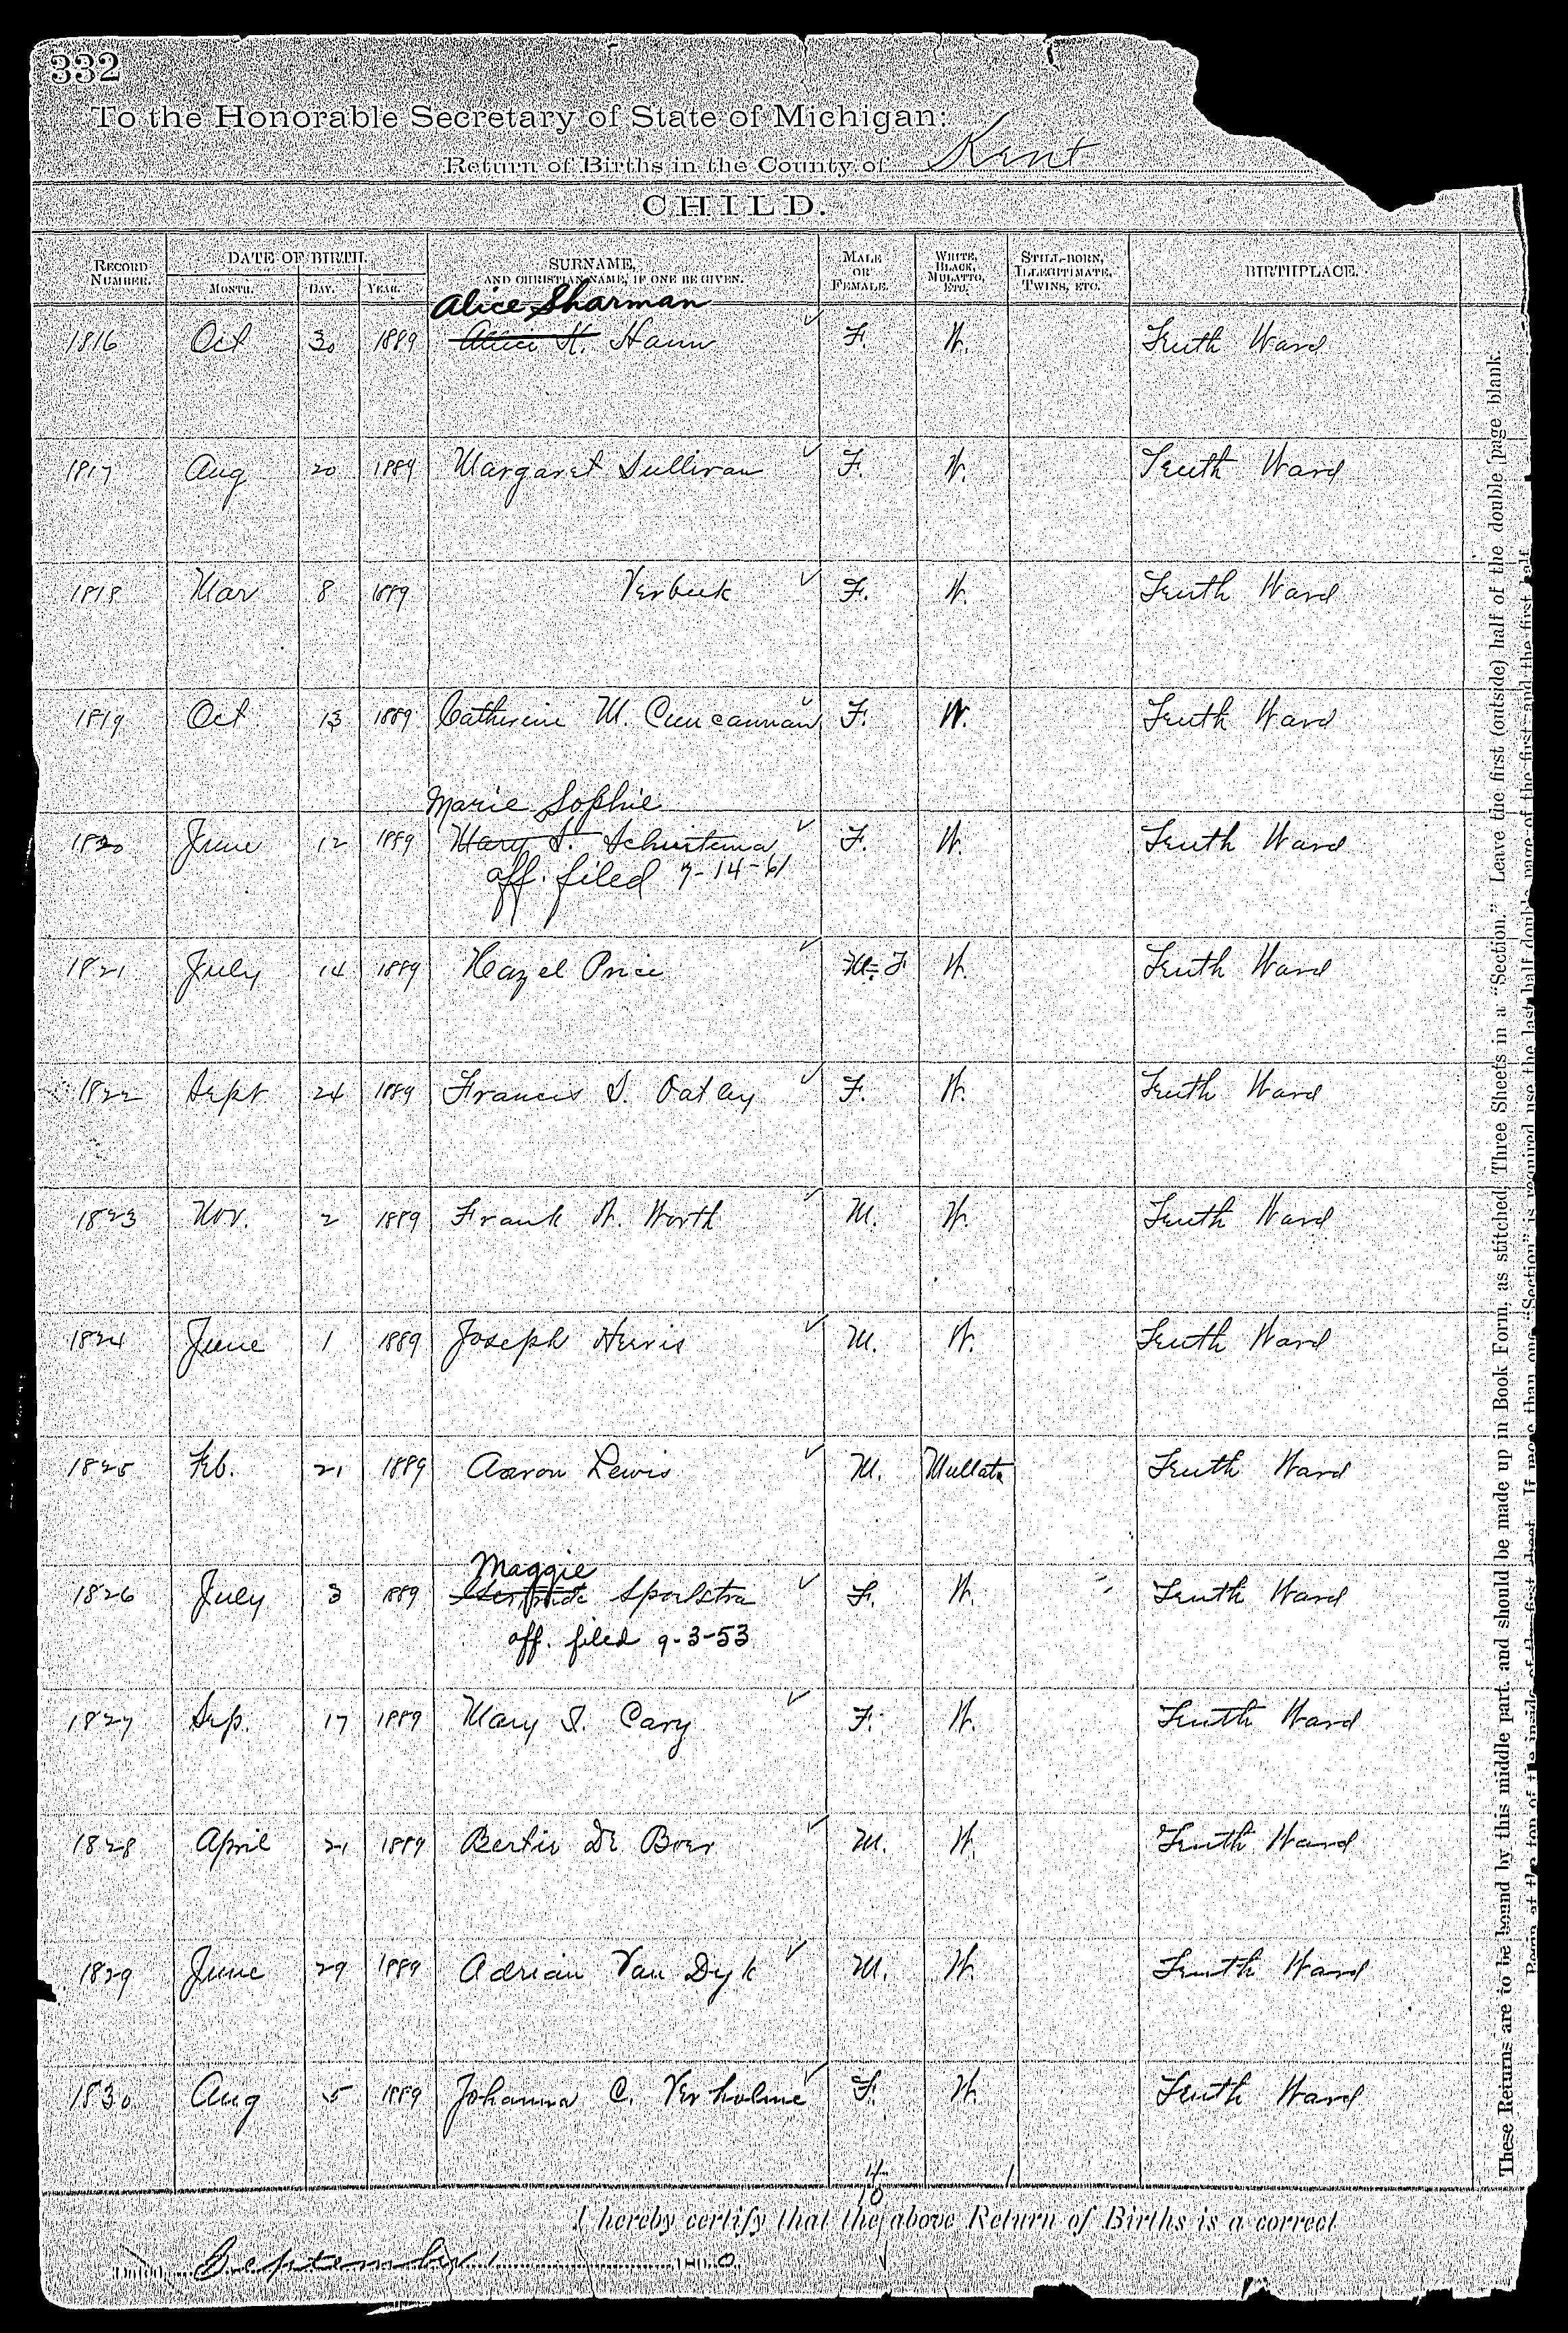 332
To the Honorable Secretary of State of Michigan:
Return of Births in the County of Kent
CHILD.
RECORD NUMBER. DATE OF BIRTH. MONTH. DAY. YEAR. SURNAME, AND CHRISTIAN NAME, IF ONE BE GIVEN. MALE OR FEMALE. WHITE, BLACK, MULATTO, ETC. STILL-BORN, ILLEGITIMATE, TWINS, ETC. BIRTHPLACE.
Alice Sharman
1816 Oct 30 1889 Alice H. Hann F. W. Tenth Ward
1817 Aug 20 1889 Margaret Sullivan F. W. Tenth Ward
1818 Mar 8 1889 Verbeek F. W. Tenth Ward
1819 Oct 13 1889 Catherine M. F. W. Tenth Ward
Marie Sophie
1820 June 12 1889 Mary S. Schuitema F. W. Tenth Ward
aff. filed 7-14-61
1821 July 14 1889 Hazel Price M. F W. Tenth Ward
1822 Sept 24 1889 Francis S. Oatley F. W. Tenth Ward
1823 Nov. 2 1889 Frank W. Worth M. W. Tenth Ward
1824 June 1 1889 Joseph M. W. Tenth Ward
1825 Feb. 21 1889 Aaron Lewis M. Mullato Tenth Ward
Maggie
1826 July 3 1889 Gertrude Spoelstra F. W. Tenth Ward
aff. filed 9-3-53
1827 Sep. 17 1889 Mary Cary F. W. Tenth Ward
1828 April 21 1889 Bertie De Boer M. W. Tenth Ward
1829 June 29 1889 Adrian Van Dyk M. W. Tenth Ward
1830 Aug 5 1889 Johanna C. Verholme F. W. Tenth Ward
4
10 1
I hereby certify that the above Return of Births is a correct
Dated, September 1
These Returns are to be bound by this middle part, and should be made up in Book Form, as stitched, Three Sheets in a "Section." Leave the first (outside) half of the double page blank.